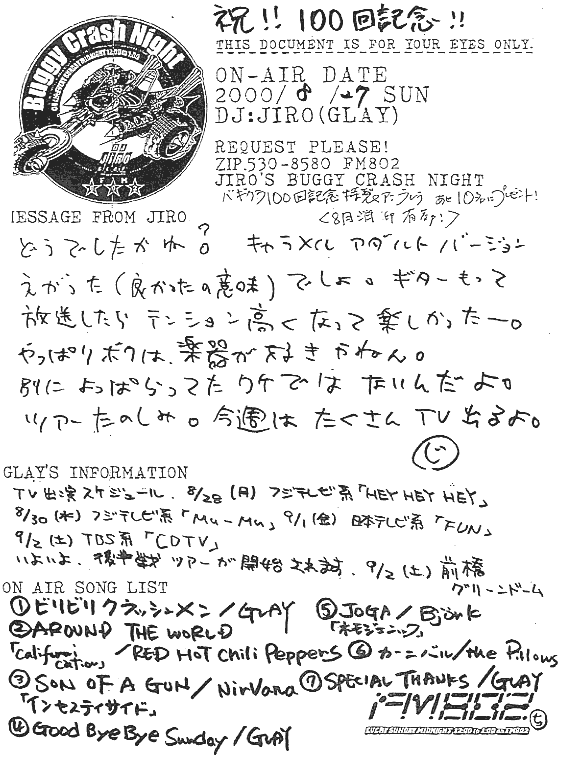 祝!! 100回記念!!
THIS DOCUMENT IS FOR YOUR EYES ONLY.
Buggy Crash Night
ON-AIR DATE
2000/8/27 SUN
DJ:JIRO(GLAY)
REQUEST PLEASE!
ZIP.530-8580 FM802
JIRO'S BUGGY CRASH NIGHT
バギクラ100回記念 あと10名にプレゼント!
<8月消印有効!>
MESSAGE FROM JIRO
どうでしたかね? キャラメル アダルト バージョン
えがった(良かったの意味)でしょ。ギターもって
放送したら テンション高くなって楽しかったー。
やっぱりボクは、楽器が好きやねん。
別に よっぱらってたワケでは ないんだよ。
ツアーたのしみ。今週は たくさん TV出るよ。
じ
GLAY'S INFORMATION
TV出演スケジュール. 8/28(月) フジテレビ系「HEY HEY HEY」
8/30(水) フジテレビ系「Mu-Mu」 9/1(金) 日本テレビ系「FUN」
9/2(土) TBS系「CDTV」
いよいよ、後半戦ツアーが開始されます. 9/2(土) 前橋
グリーンドーム
ON AIR SONG LIST
①ビリビリクラッシュメン/GLAY
②AROUND THE WORLD
「Californication」/RED HOT Chili Peppers
③SON OF A GUN/Nirvana
「インセスティサイド」
④Good Bye Bye Sunday/GLAY
⑤JOGA/Björk
「ホモジェニック」
⑥カーニバル/the Pillows
⑦SPECIAL THANKS/GLAY
FM802
EVERY SUNDAY MIDNIGHT 12:00 to 1:00 on FM802